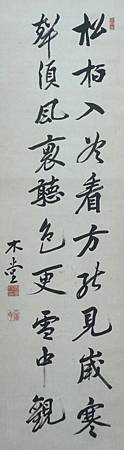 松柏入冬看方能見歲寒
聲須風裏聽色更雪中觀
木堂